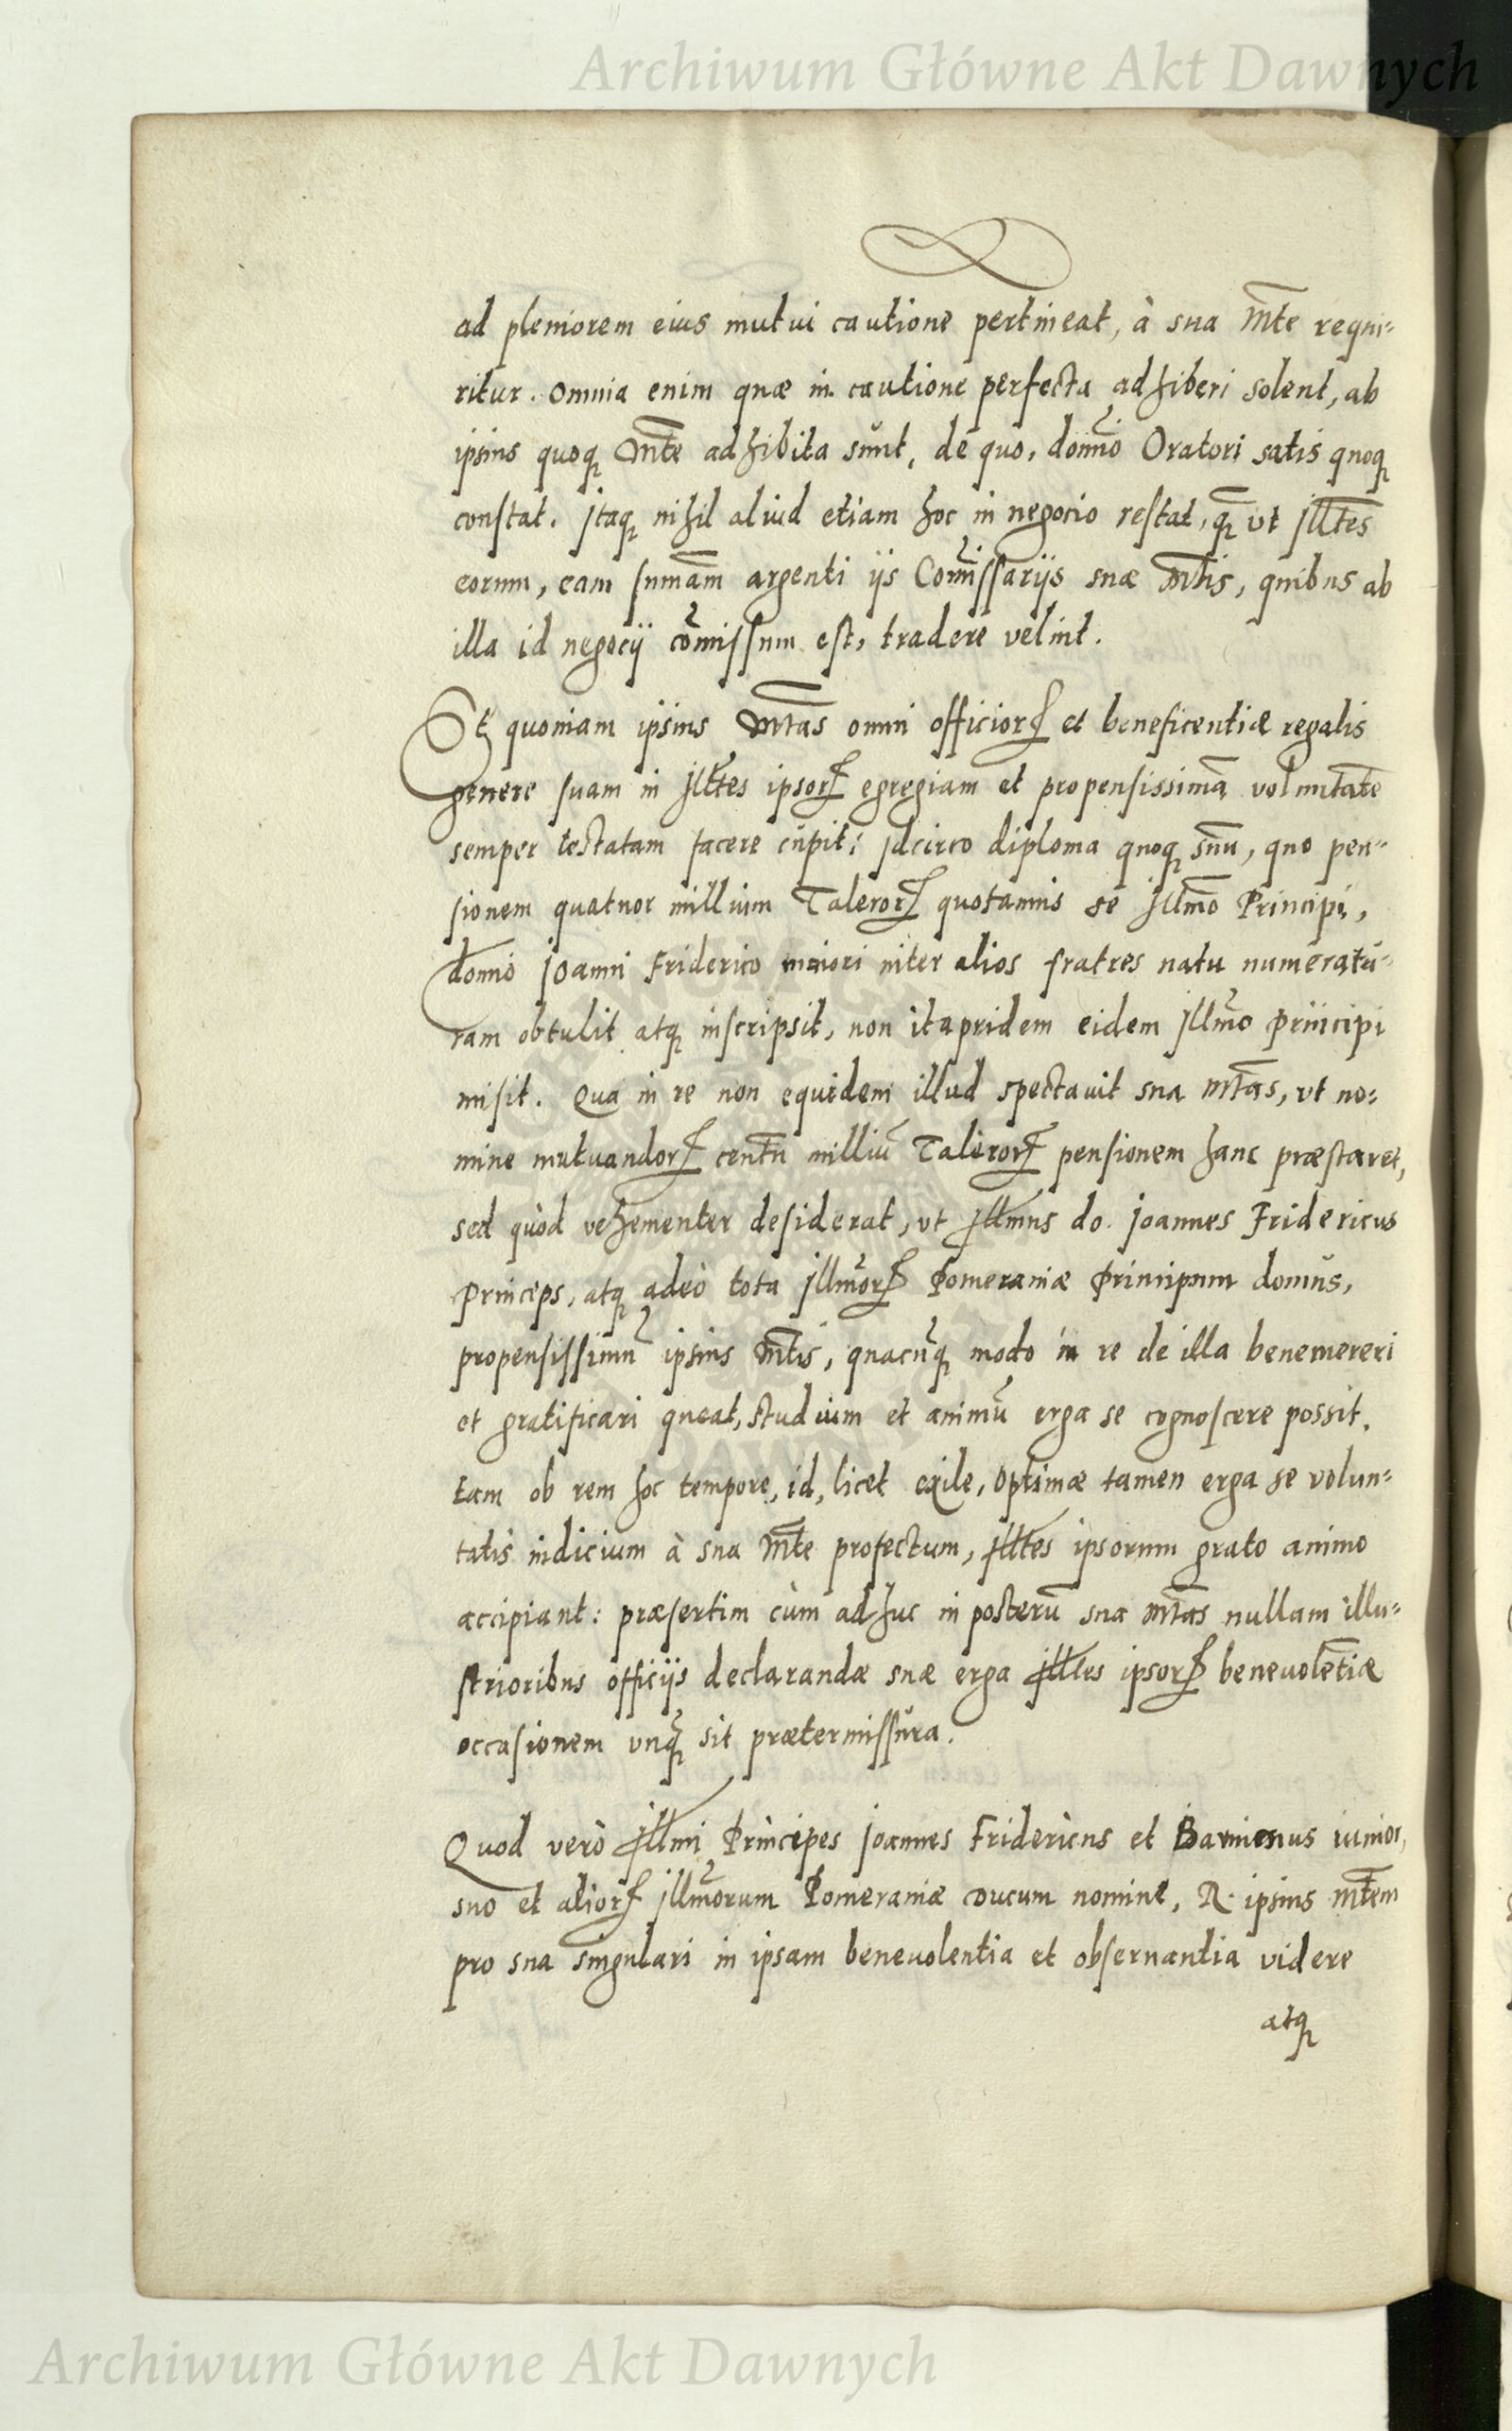 Archiwum Główne Akt Dawnych
ad pleniorem eius mutui cautione pertineat, à sua Mte requi=
ritur. Omnia enim quæ in cautione perfecta adhiberi solent, ab
ipsius quoq Mte adhibita sunt, de quo, domio Oratori satis quoq
constat. Itaq nihil aliud etiam hoc in negocio restat, q̃ vt Illtes
eorum, eam sumam argenti iis Comissariis suæ Mtis, quibus ab
illa id negocij comissum est, tradere velint.
Et quoniam ipsius Mtas omni officior et beneficentiæ regalis
genere suam in Illtes ipsor egregiam et propensissimã voluntate
semper testatam facere cupit: Idcirco diploma quoq suũ, quo pen=
sionem quatuor millium Taleror quotannis se Illmo Principi,
domio Joanni Friderico maiori inter alios fratres natu numeratu=
ram obtulit atq inscripsit, non itapridem eidem Illmo Principi
misit. Qua in re non equidem illud spectauit sua Mtas, vt no=
mine mutuandor centũ milliũ Taleror pensionem hanc præstaret,
sed quòd vehementer desiderat, vt Illmus do. Joannes Fridericus
Princeps, atq adeò tota Illmor Pomeraniæ Principum domus,
propensissimũ ipsius Mtis, quacũq modo in re de illa benemereri
et gratificari queat, studium et animũ erga se cognoscere possit.
Eam ob rem hoc tempore, id, licet exile, optimæ tamen erga se volun=
tatis indicium à sua Mte profectum, Illtes ipsorum grato animo
accipiant: præsertim cùm adhuc in posterũ sua Mtas nullam illu=
strioribus officijs declarandæ suæ erga Illtes ipsor beneuolẽtiæ
occasionem vnq̃ sit prætermissura.
Quod verò Illmi Principes Joannes Fridericus et Barnimus iunior,
suo et alior Illmorum Pomeraniæ Ducum nomine, R. ipsius Mtem
pro sua singulari in ipsam beneuolentia et obseruantia videre
atq
Archiwum Główne Akt Dawnych